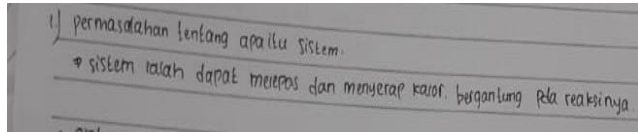 1) permasalahan tentang apa itu sistem.
* sistem ialah dapat melepas dan menyerap kalor. bergantung pada reaksinya